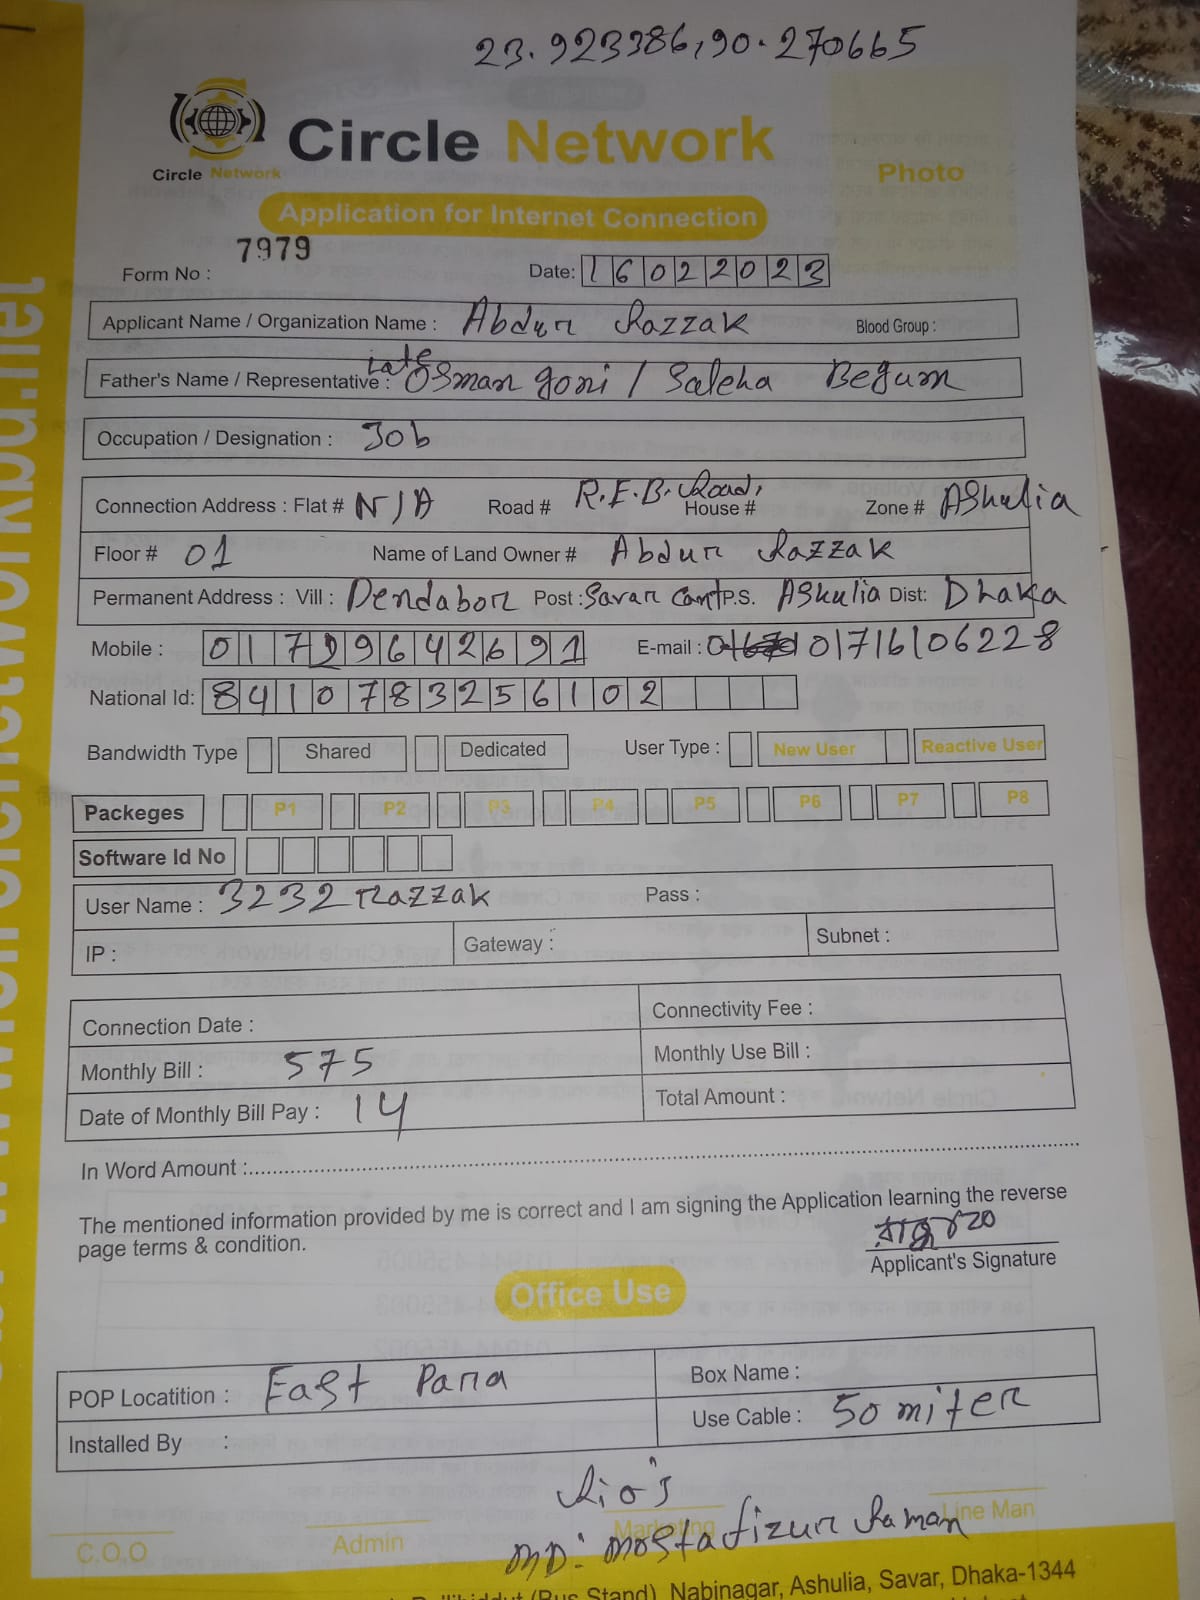 23.923386,90.270665
Circle Network
Circle Network
Photo
Application for Internet Connection
7979
Form No :
Date: 16022023
Applicant Name / Organization Name : Abdur Razzak Blood Group :
Father's Name / Representative : late Osman goni / Saleha Begum
Occupation / Designation : Job
Connection Address : Flat # N/A Road # R.E.B. Road, House # Zone # AShulia
Floor # 01 Name of Land Owner # Abdur Razzak
Permanent Address : Vill : Dendabor Post : Savar Cant P.S. AShulia Dist: Dhaka
Mobile : 01729642691 E-mail : 01716106228
National Id: 8410783256102
Bandwidth Type Shared Dedicated User Type : New User Reactive User
Packeges P1 P2 P3 P4 P5 P6 P7 P8
Software Id No
User Name : 3232 Razzak Pass :
IP : Gateway : Subnet :
Connection Date : Connectivity Fee :
Monthly Bill : 575 Monthly Use Bill :
Date of Monthly Bill Pay : 14 Total Amount :
In Word Amount :
The mentioned information provided by me is correct and I am signing the Application learning the reverse
page terms & condition.
Applicant's Signature
Office Use
POP Locatition : East Para Box Name :
Installed By : Use Cable : 50 miter
Rio's
C.O.O Admin Marketing Line Man
MD: Mostafizur Raman
(Bus Stand), Nabinagar, Ashulia, Savar, Dhaka-1344